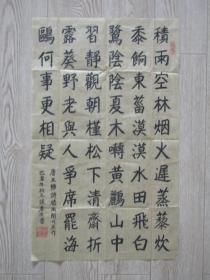 積雨空林烟火遲蒸藜炊
黍餉東菑漠漠水田飛白
鷺陰陰夏木囀黃鸝山中
習靜觀朝槿松下清齋折
露葵野老與人爭席罷海
鷗何事更相疑
唐王維詩積雨輞川莊作